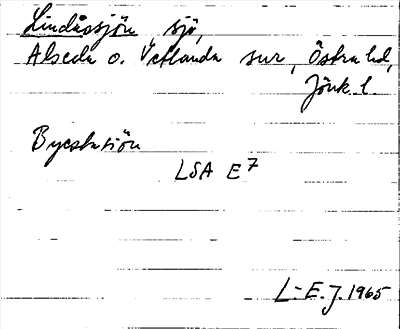 Lindåssjön sjö,
Alseda o. Vetlanda sur, Östra hd,
Jönk. l.
Byestasjön
LSA E7
L-E.J. 1965